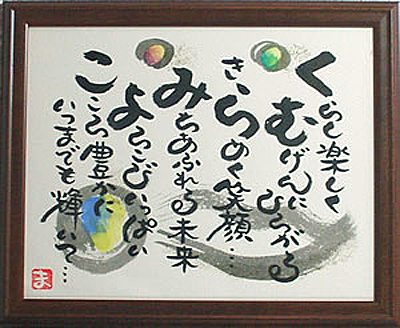 くらし楽しく
むげんにひろがる
きらめく笑顔…
みちあふれる未来
よろこびいっぱい
こころ豊かに
いつまでも輝いて…
ま